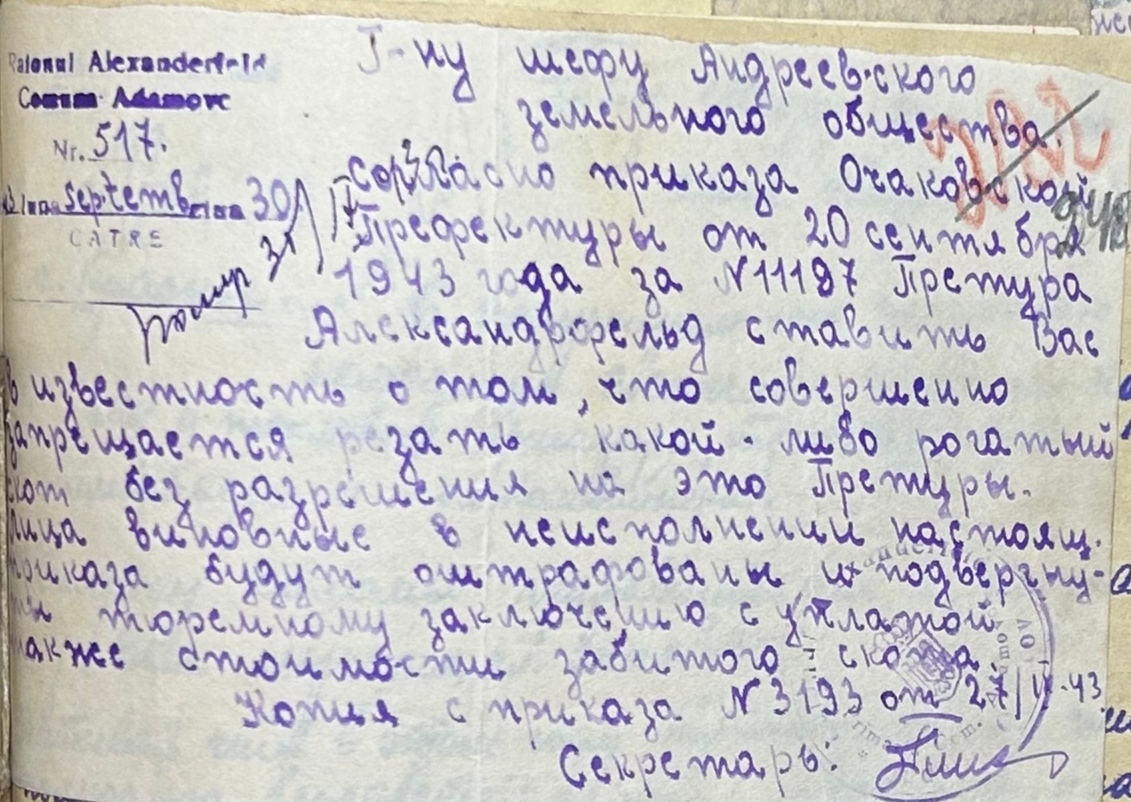 Raionul Alexanderfeld
Comuna Adamovc
Nr. 517.
septemb 30
CATRE
Г-ну шефу Андреевского
земельного общества.
Согласно приказа Очаковской
248
Префектуры от 20 сентября
1943 года за N11197 Претура
Александрфельд ставить Вас
в известность о том, что совершенно
запрещается резать какой-либо рогатый
скот без разрешения на это Претуры.
Лица виновные в неисполнении настоящ.
приказа будут оштрафованы и подвергну-
тся тюремному заключению с уплатой
также стоимости забитого скота.
Копия с приказа N3193 от 27/IX-43
Секретарь: